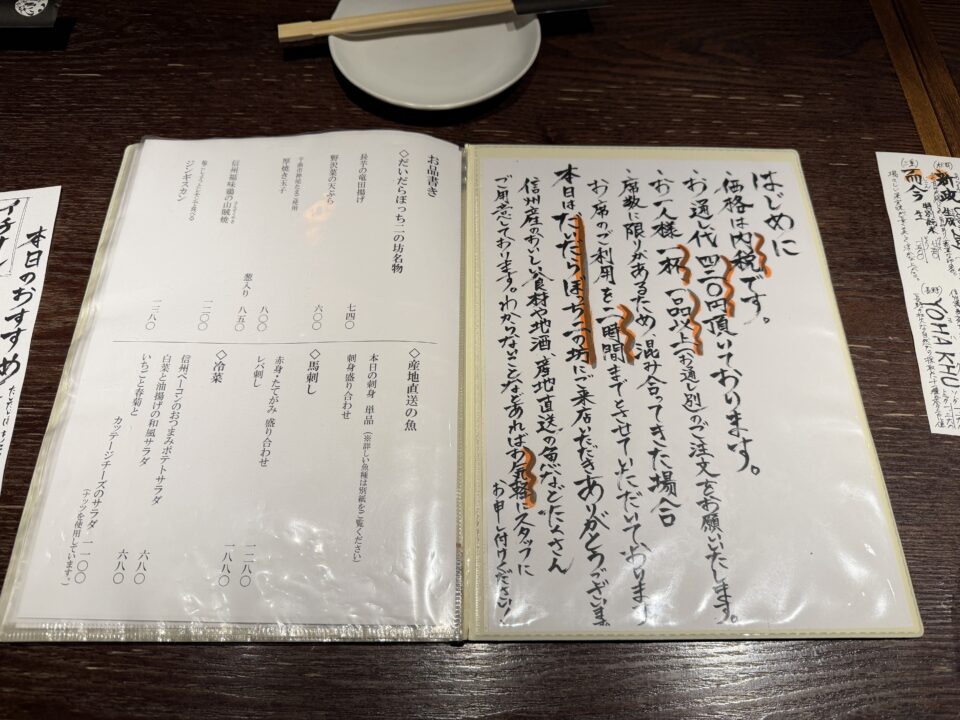 はじめに
価格は内税です。
お通し代 四二〇円頂いております。
お一人様 一杯 一品以上(お通し別)のご注文をお願いいたします。
席数に限りがあるため、混み合ってきた場合
お席のご利用を二時間までとさせていただいております
本日はだいだらぼっち二の坊にご来店いただきありがとうございます。
信州産のおいしい食材や地酒、産地直送の魚などたくさん
ご用意しております。わからないことなどあればお気軽にスタッフに
お申し付けください!
お品書き
◇だいだらぼっち二の坊名物
長芋の竜田揚げ 七四〇
野沢菜の天ぷら 六〇〇
千曲市 使用
厚焼き玉子 八〇〇
葱入り 八五〇
信州福味鶏の山賊焼 一二〇〇
塩とジュレとレモンで食べる
ジンギスカン 一三八〇
◇産地直送の魚
本日の刺身 単品(※詳しい魚種は別紙をご覧ください)
刺身盛り合わせ
◇馬刺し
赤身・たてがみ 盛り合わせ 一八八〇
レバ刺し 一二八〇
◇冷菜
信州ベーコンのおつまみポテトサラダ 六八〇
白菜と油揚げの和風サラダ 六八〇
いちごと春菊と
カッテージチーズのサラダ 一一〇〇
(ナッツを使用しています。)
本日のおすすめ
イチオシ
新政
而今 生
特別純米
YOHAKHU